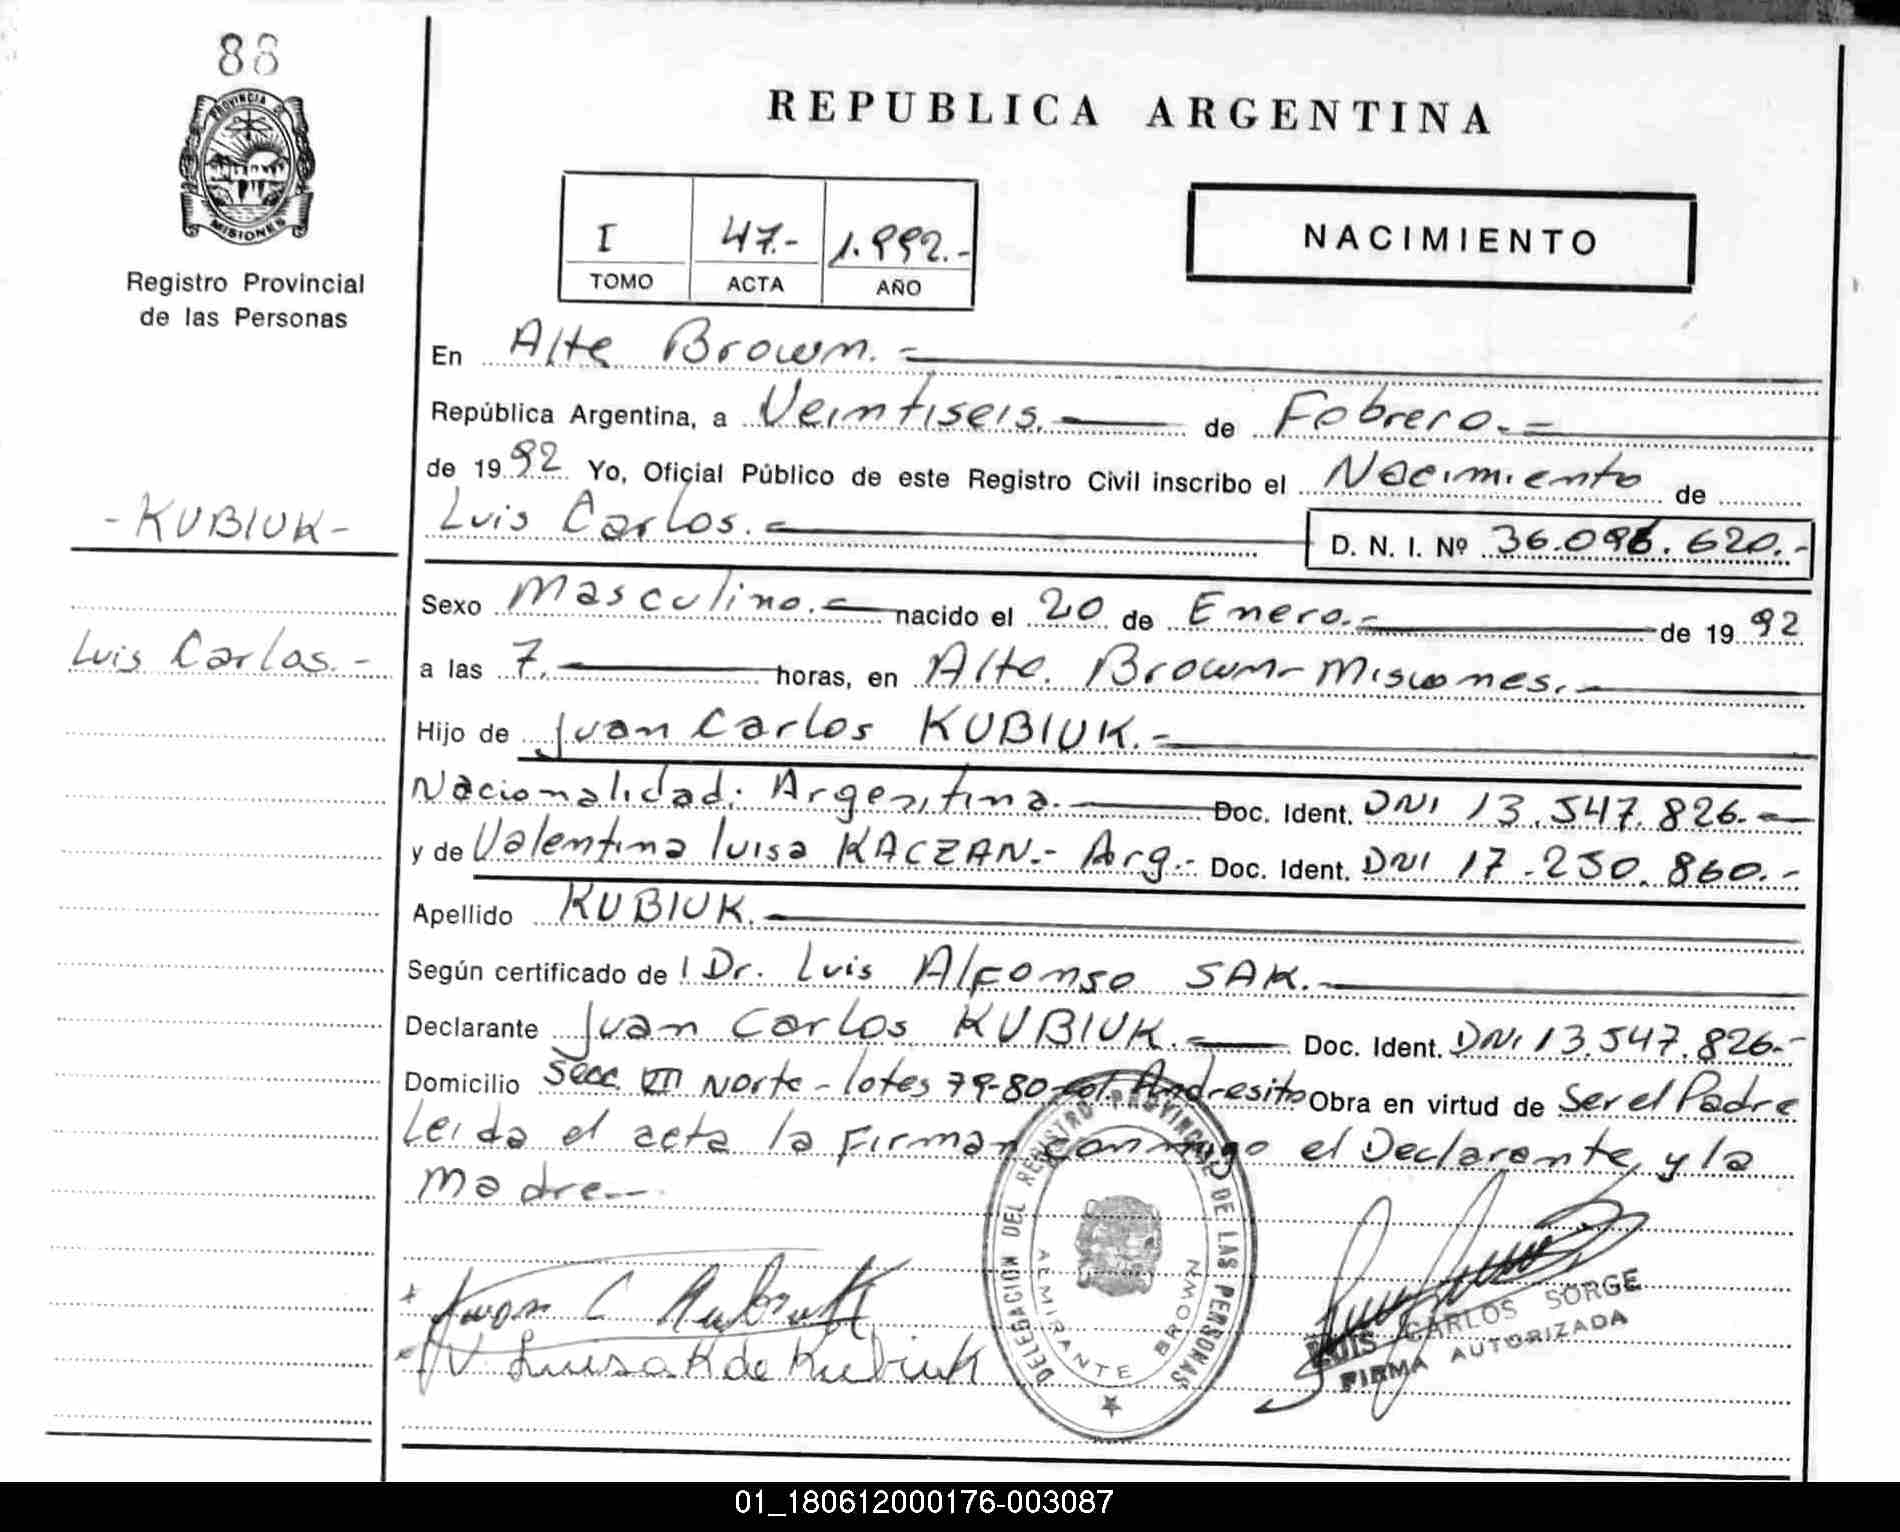 88
PROVINCIA D
MISIONES
Registro Provincial
de las Personas
REPUBLICA ARGENTINA
I 47.- 1.992.-
TOMO ACTA AÑO
NACIMIENTO
En Alte Brown.-
República Argentina, a Veintiseis.- de Febrero.-
de 1992 Yo, Oficial Público de este Registro Civil inscribo el Nacimiento de
-KUBIUK-
Luis Carlos.- D. N. I. Nº 36.096.620.-
Sexo Masculino.- nacido el 20 de Enero.- de 1992
Luis Carlos.-
a las 7.- horas, en Alte. Brown-Misiones.-
Hijo de Juan Carlos KUBIUK.-
Nacionalidad: Argentina.- Doc. Ident. DNI 13.547.826.-
y de Valentina Luisa KACZAN.- Arg.- Doc. Ident. DNI 17.250.860.-
Apellido KUBIUK.-
Según certificado de l Dr. Luis Alfonso SAK.-
Declarante Juan Carlos KUBIUK.- Doc. Ident. DNI 13.547.826.-
Domicilio Secc. VII Norte - lotes 79-80-Col. Andresito Obra en virtud de Ser el Padre
Leida el acta la Firman conmigo el Declarante, y la
Madre.-
Juan C Kubiuk
V. Luisa K de Kubiuk
DELEGACION DEL REGISTRO PROVINCIAL DE LAS PERSONAS
ALMIRANTE BROWN
LUIS CARLOS SORGE
FIRMA AUTORIZADA
01_180612000176-003087